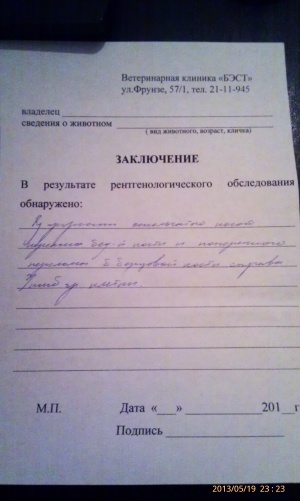 Ветеринарная клиника «БЭСТ»
ул.Фрунзе, 57/1, тел. 21-11-945
владелец
сведения о животном
( вид животного, возраст, кличка)
ЗАКЛЮЧЕНИЕ
В результате рентгенологического обследования
обнаружено:
кости и поперечного
перелома кости справа
М.П. Дата «___» ____________201__г.
Подпись
2013/05/19 23:23